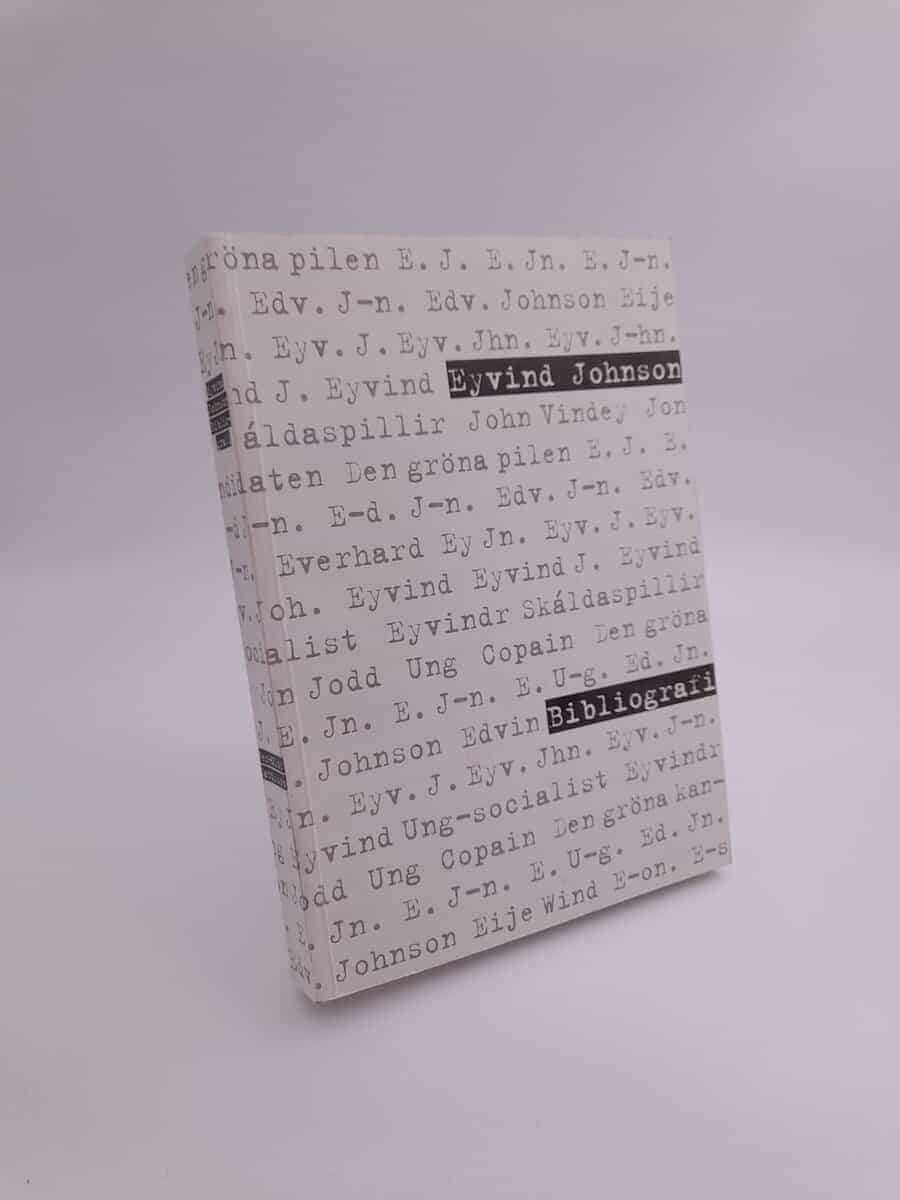 en gröna pilen E. J. E. Jn. E. J-n.
J-n. Edv. J-n. Edv. Johnson Eije
Ey Jn. Eyv. J. Eyv. Jhn. Eyv. J-hn.
nd J. Eyvind Eyvind Johnson
áldaspillir John Vindey Jon
ndidaten Den gröna pilen E. J. E.
-d J-n. E-d. J-n. Edv. J-n. Edv.
Everhard Ey Jn. Eyv. J. Eyv.
v. Joh. Eyvind Eyvind J. Eyvind
ocialist Eyvindr Skáldaspillir
Jon Jodd Ung Copain Den gröna
J. E. Jn. E. J-n. E. U-g. Ed. Jn.
. Johnson Edvin Bibliografi
Ey Jn. Eyv. J. Eyv. Jhn. Eyv. J-n.
Eyvind Ung-socialist Eyvindr
Jodd Ung Copain Den gröna kan-
. E. Jn. E. J-n. E. U-g. Ed. Jn.
Edv. Johnson Eije Wind E-on. E-s